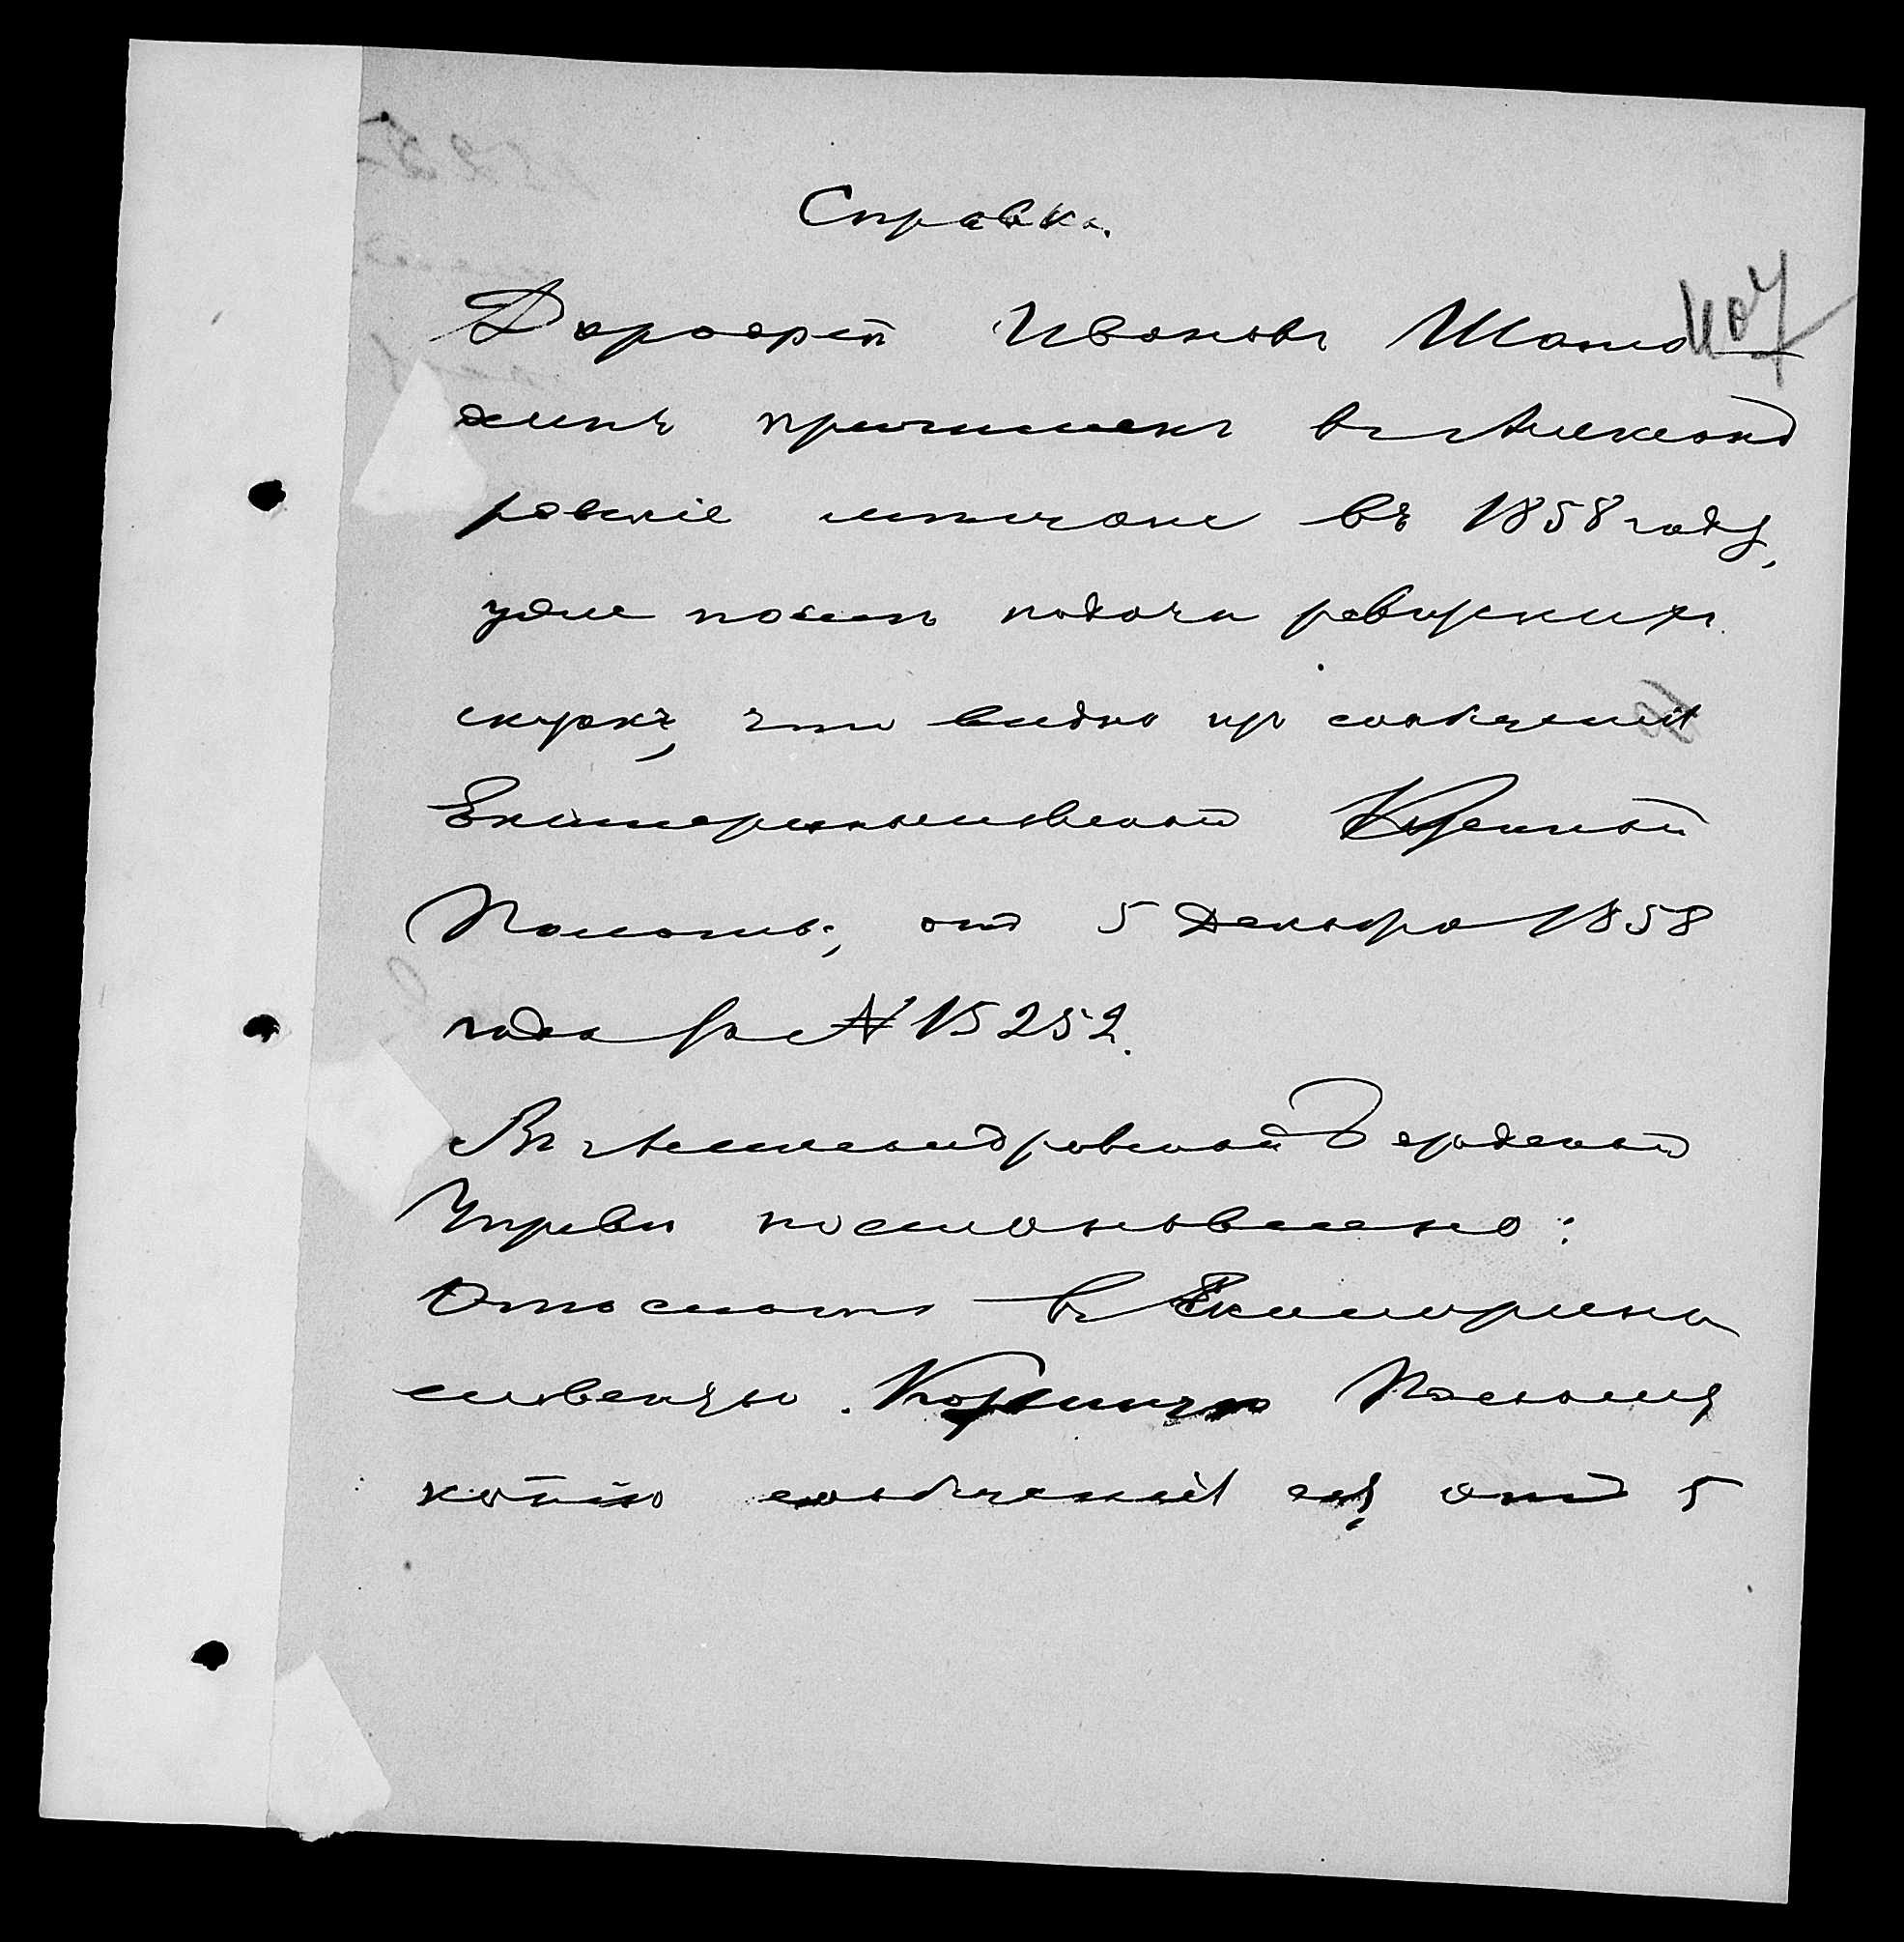 Справка.
407
Дорофей Ивановъ Шапо
жинъ причисленъ въ Александ
ровскіе мѣщане въ 1858 году,
уже послѣ подачи ревизкихъ
сказокъ, что видно изъ сообщенія
Екатеринославской Казенной
Палаты, отъ 5 Декабря 1858
года за № 15252.
Въ Александровской Городской
Управѣ постановлено:
Отослать въ Екатерино
славскую Казенную Палату
копію сообщенія ея отъ 5